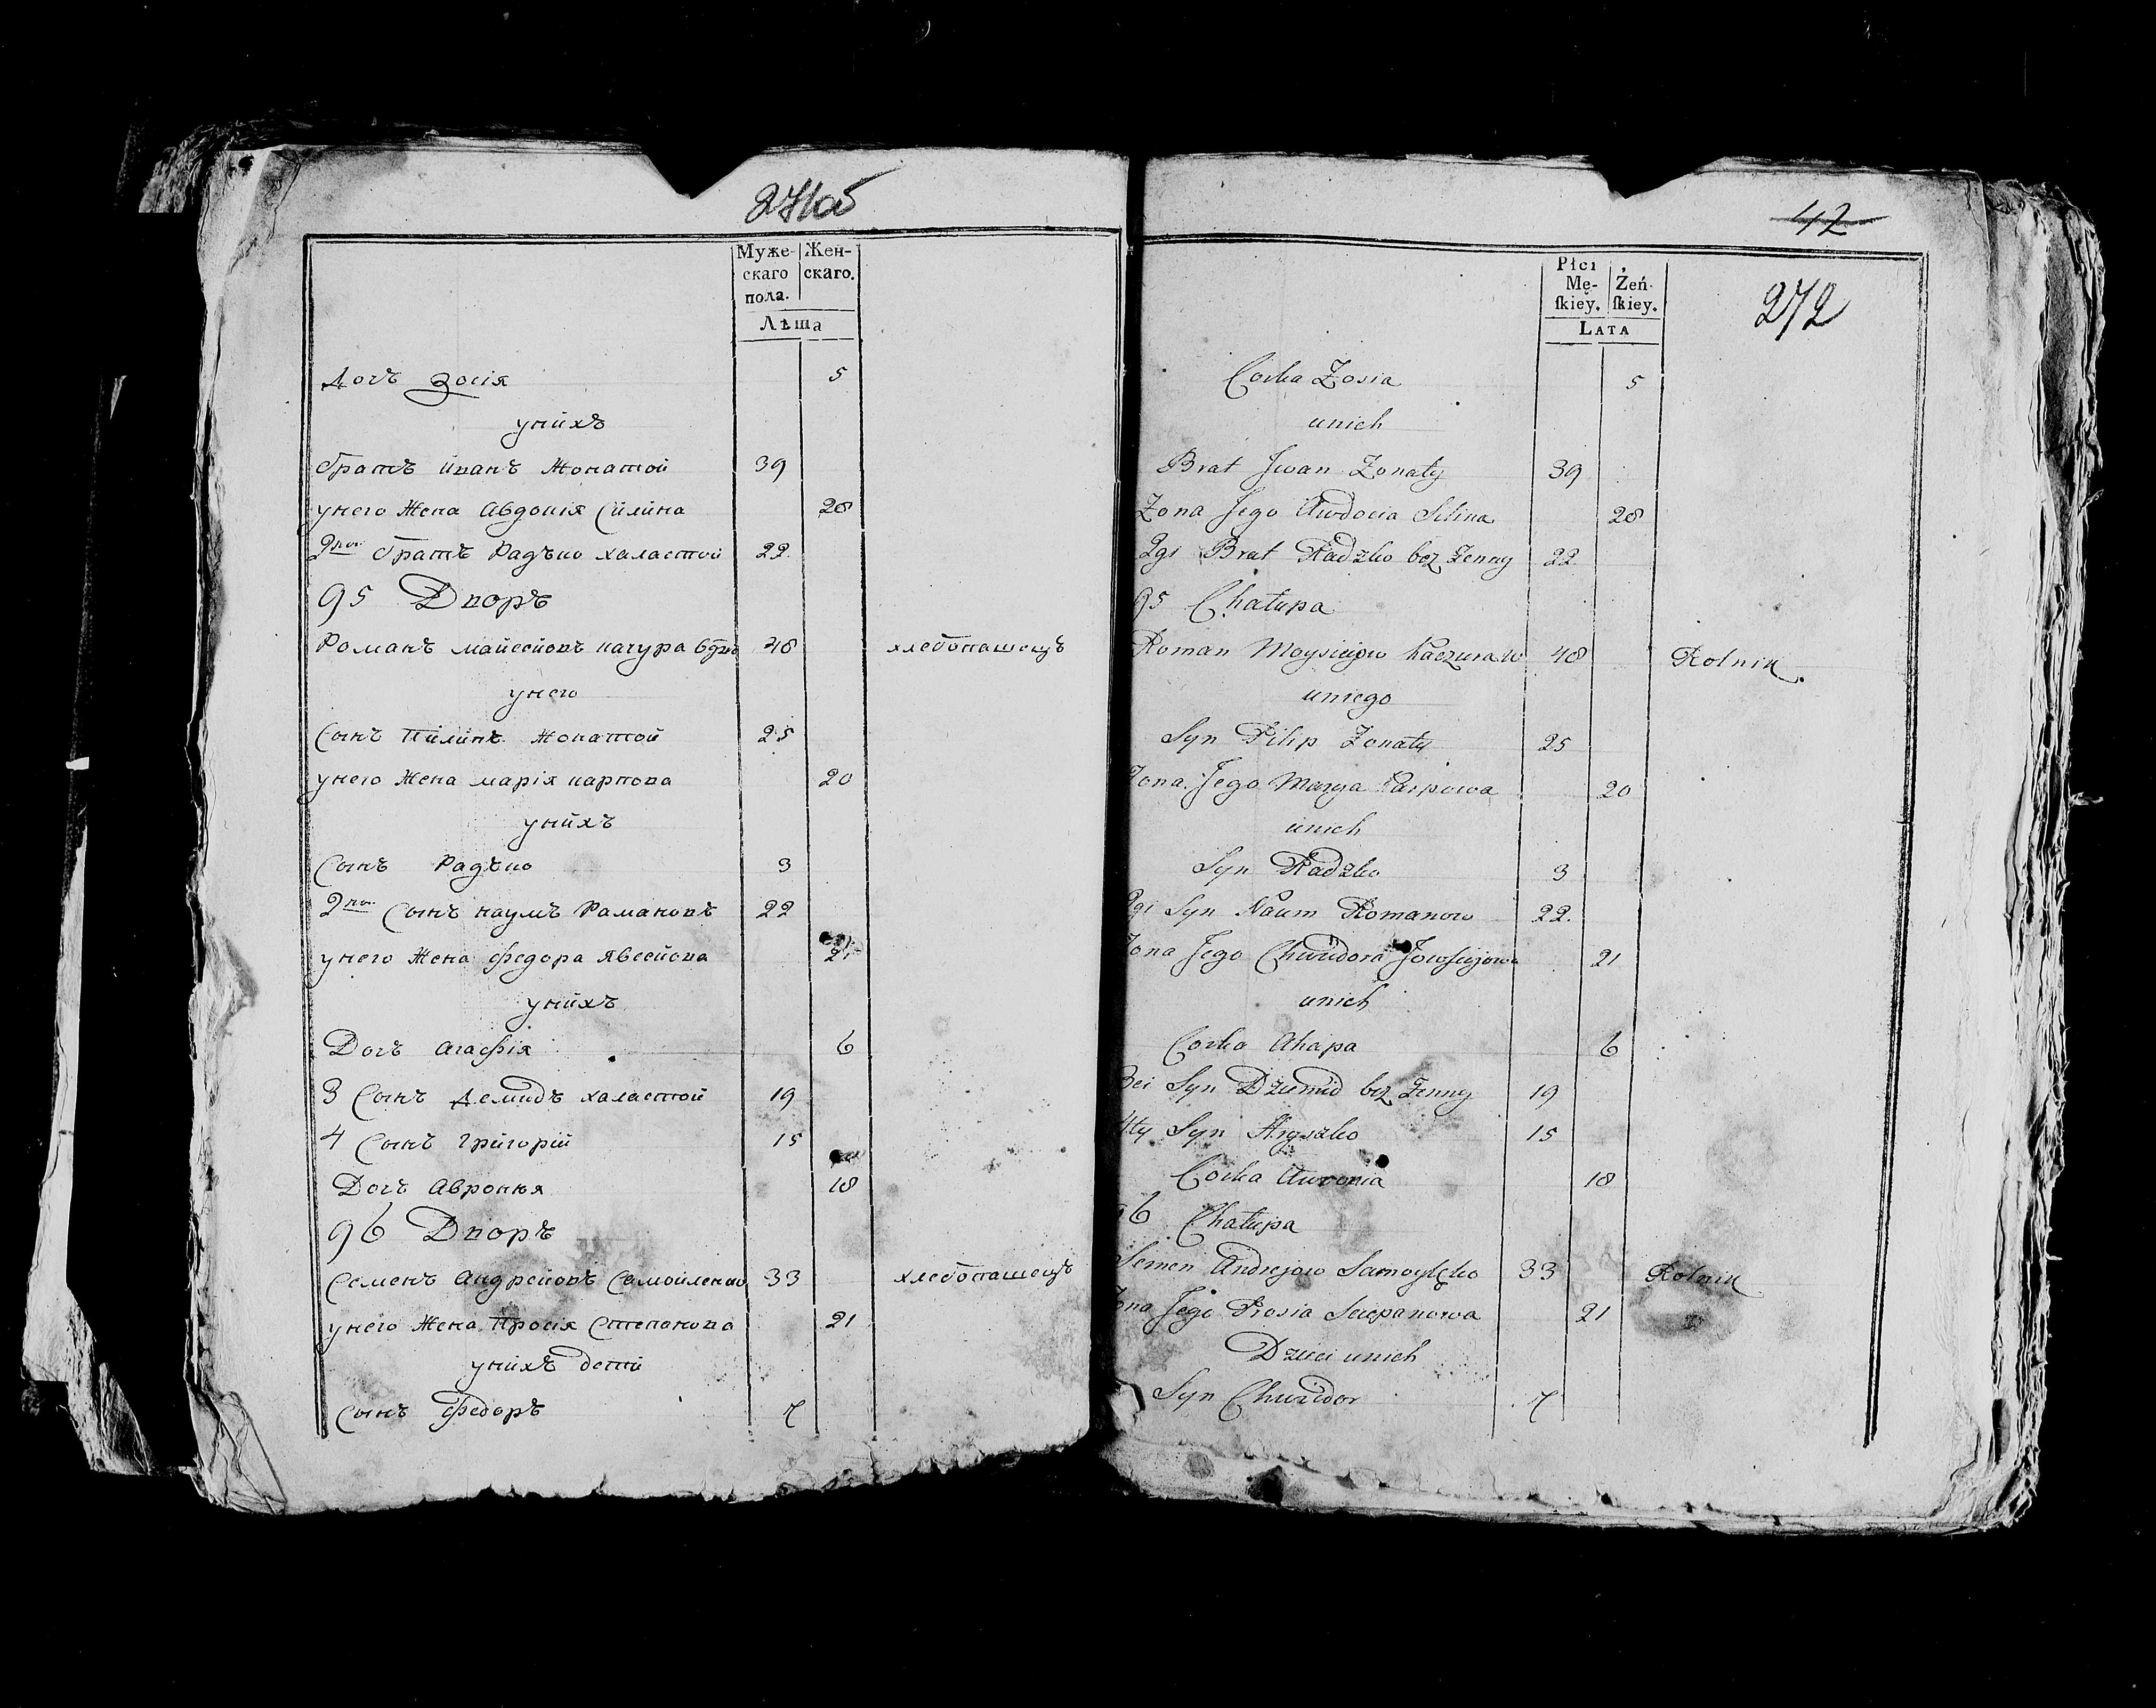 271об
Муже- Жен-
скаго скаго.
пола.
Лѣта
Дочъ Зосія 5
унихъ
братъ иванъ Жонатой 39
унего Жена Авдоція Силина 28
2гой братъ Радъко халастой 22
95 Дворъ
Романъ майсеювъ качура 48 хлебопашецъ
унего
Сынъ Пилипъ Жонатой 25
унего Жена марія карпова 20
унихъ
Сынъ Радъко 3
2гой Сынъ наумъ Рамановъ 22
унего Жена федора 21
унихъ
Дочъ агафія 6
3 Сынъ Демидъ халастой 19
4 Сынъ григорій 15
Дочъ Авроння 18
96 Дворъ
Семенъ Андрейовъ Самойленко 33 хлебопашецъ
унего Жена Прося Степанова 21
унихъ дети
Сынъ федоръ 7
42
272
Płci
Mę- Żeń-
ſkiey. ſkiey.
LATA
Corka Zosia 5
unich
Brat Jwan Zonaty 39
Zona Jego Awdocia Silina 28
2gi Brat Radzko bez Zenny 22
95 Chałupa
Roman Kaczura 48 Rolnik
uniego
Syn Pilip Zonaty 25
Zona Jego Marya Karpowa 20
unich
Syn Radzko 3
2gi Syn Naum Romanow 22
Zona Jego Chwiedora 21
unich
Corka Ahapa 6
3ci Syn Dziemid bez Zenny 19
4ty Syn Hryszko 15
Corka Awronia 18
96 Chałupa
Semen Andrejow 33 Rolnik
Zona Jego Prosia Sciepanowa 21
Dzieci unich
Syn Chwiedor 7